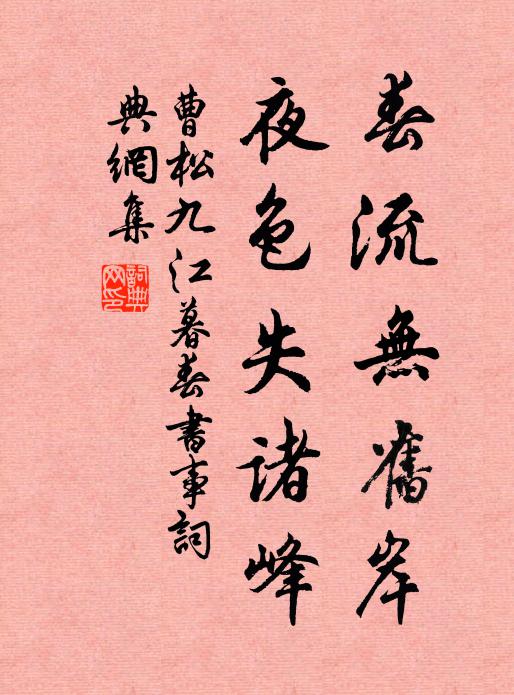 春流無舊岸
夜色失诸峰
曹松九江暮春書事詞
典網集
詞典
网印